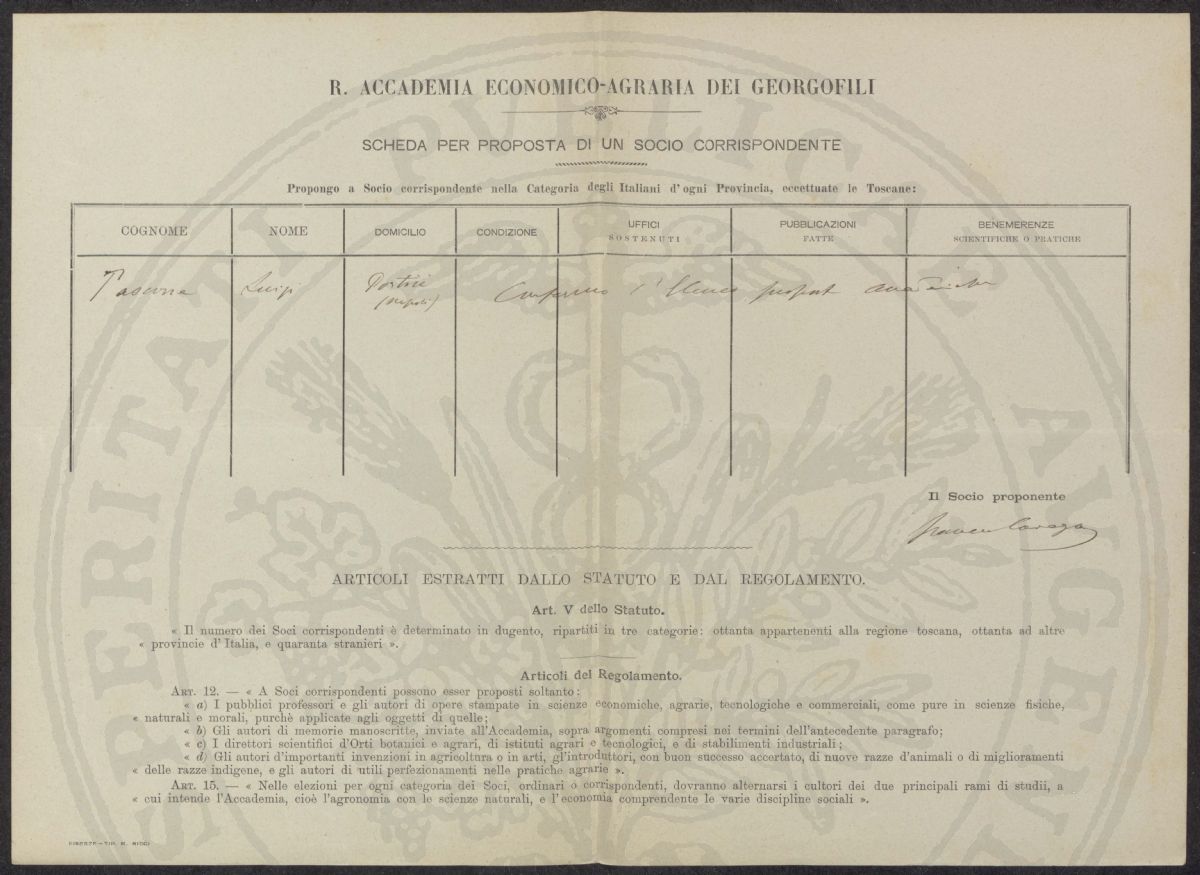 R. ACCADEMIA ECONOMICO-AGRARIA DEI GEORGOFILI
SCHEDA PER PROPOSTA DI UN SOCIO CORRISPONDENTE
Propongo a Socio corrispondente nella Categoria degli Italiani d'ogni Provincia, eccettuate le Toscane:
COGNOME NOME DOMICILIO CONDIZIONE UFFICI SOSTENUTI PUBBLICAZIONI FATTE BENEMERENZE SCIENTIFICHE O PRATICHE
Luigi Portici
(Napoli)
Il Socio proponente
ARTICOLI ESTRATTI DALLO STATUTO E DAL REGOLAMENTO.
Art. V dello Statuto.
« Il numero dei Soci corrispondenti è determinato in dugento, ripartiti in tre categorie: ottanta appartenenti alla regione toscana, ottanta ad altre
« provincie d'Italia, e quaranta stranieri ».
Articoli del Regolamento.
ART. 12. — « A Soci corrispondenti possono esser proposti soltanto:
« a) I pubblici professori e gli autori di opere stampate in scienze economiche, agrarie, tecnologiche e commerciali, come pure in scienze fisiche,
« naturali e morali, purchè applicate agli oggetti di quelle;
« b) Gli autori di memorie manoscritte, inviate all'Accademia, sopra argomenti compresi nei termini dell'antecedente paragrafo;
« c) I direttori scientifici d'Orti botanici e agrari, di istituti agrari e tecnologici, e di stabilimenti industriali;
« d) Gli autori d'importanti invenzioni in agricoltura o in arti, gl'introduttori, con buon successo accertato, di nuove razze d'animali o di miglioramenti
« delle razze indigene, e gli autori di utili perfezionamenti nelle pratiche agrarie ».
ART. 15. — « Nelle elezioni per ogni categoria dei Soci, ordinari o corrispondenti, dovranno alternarsi i cultori dei due principali rami di studii, a
« cui intende l'Accademia, cioè l'agronomia con le scienze naturali, e l'economia comprendente le varie discipline sociali ».
FIRENZE - TIP. M. RICCI